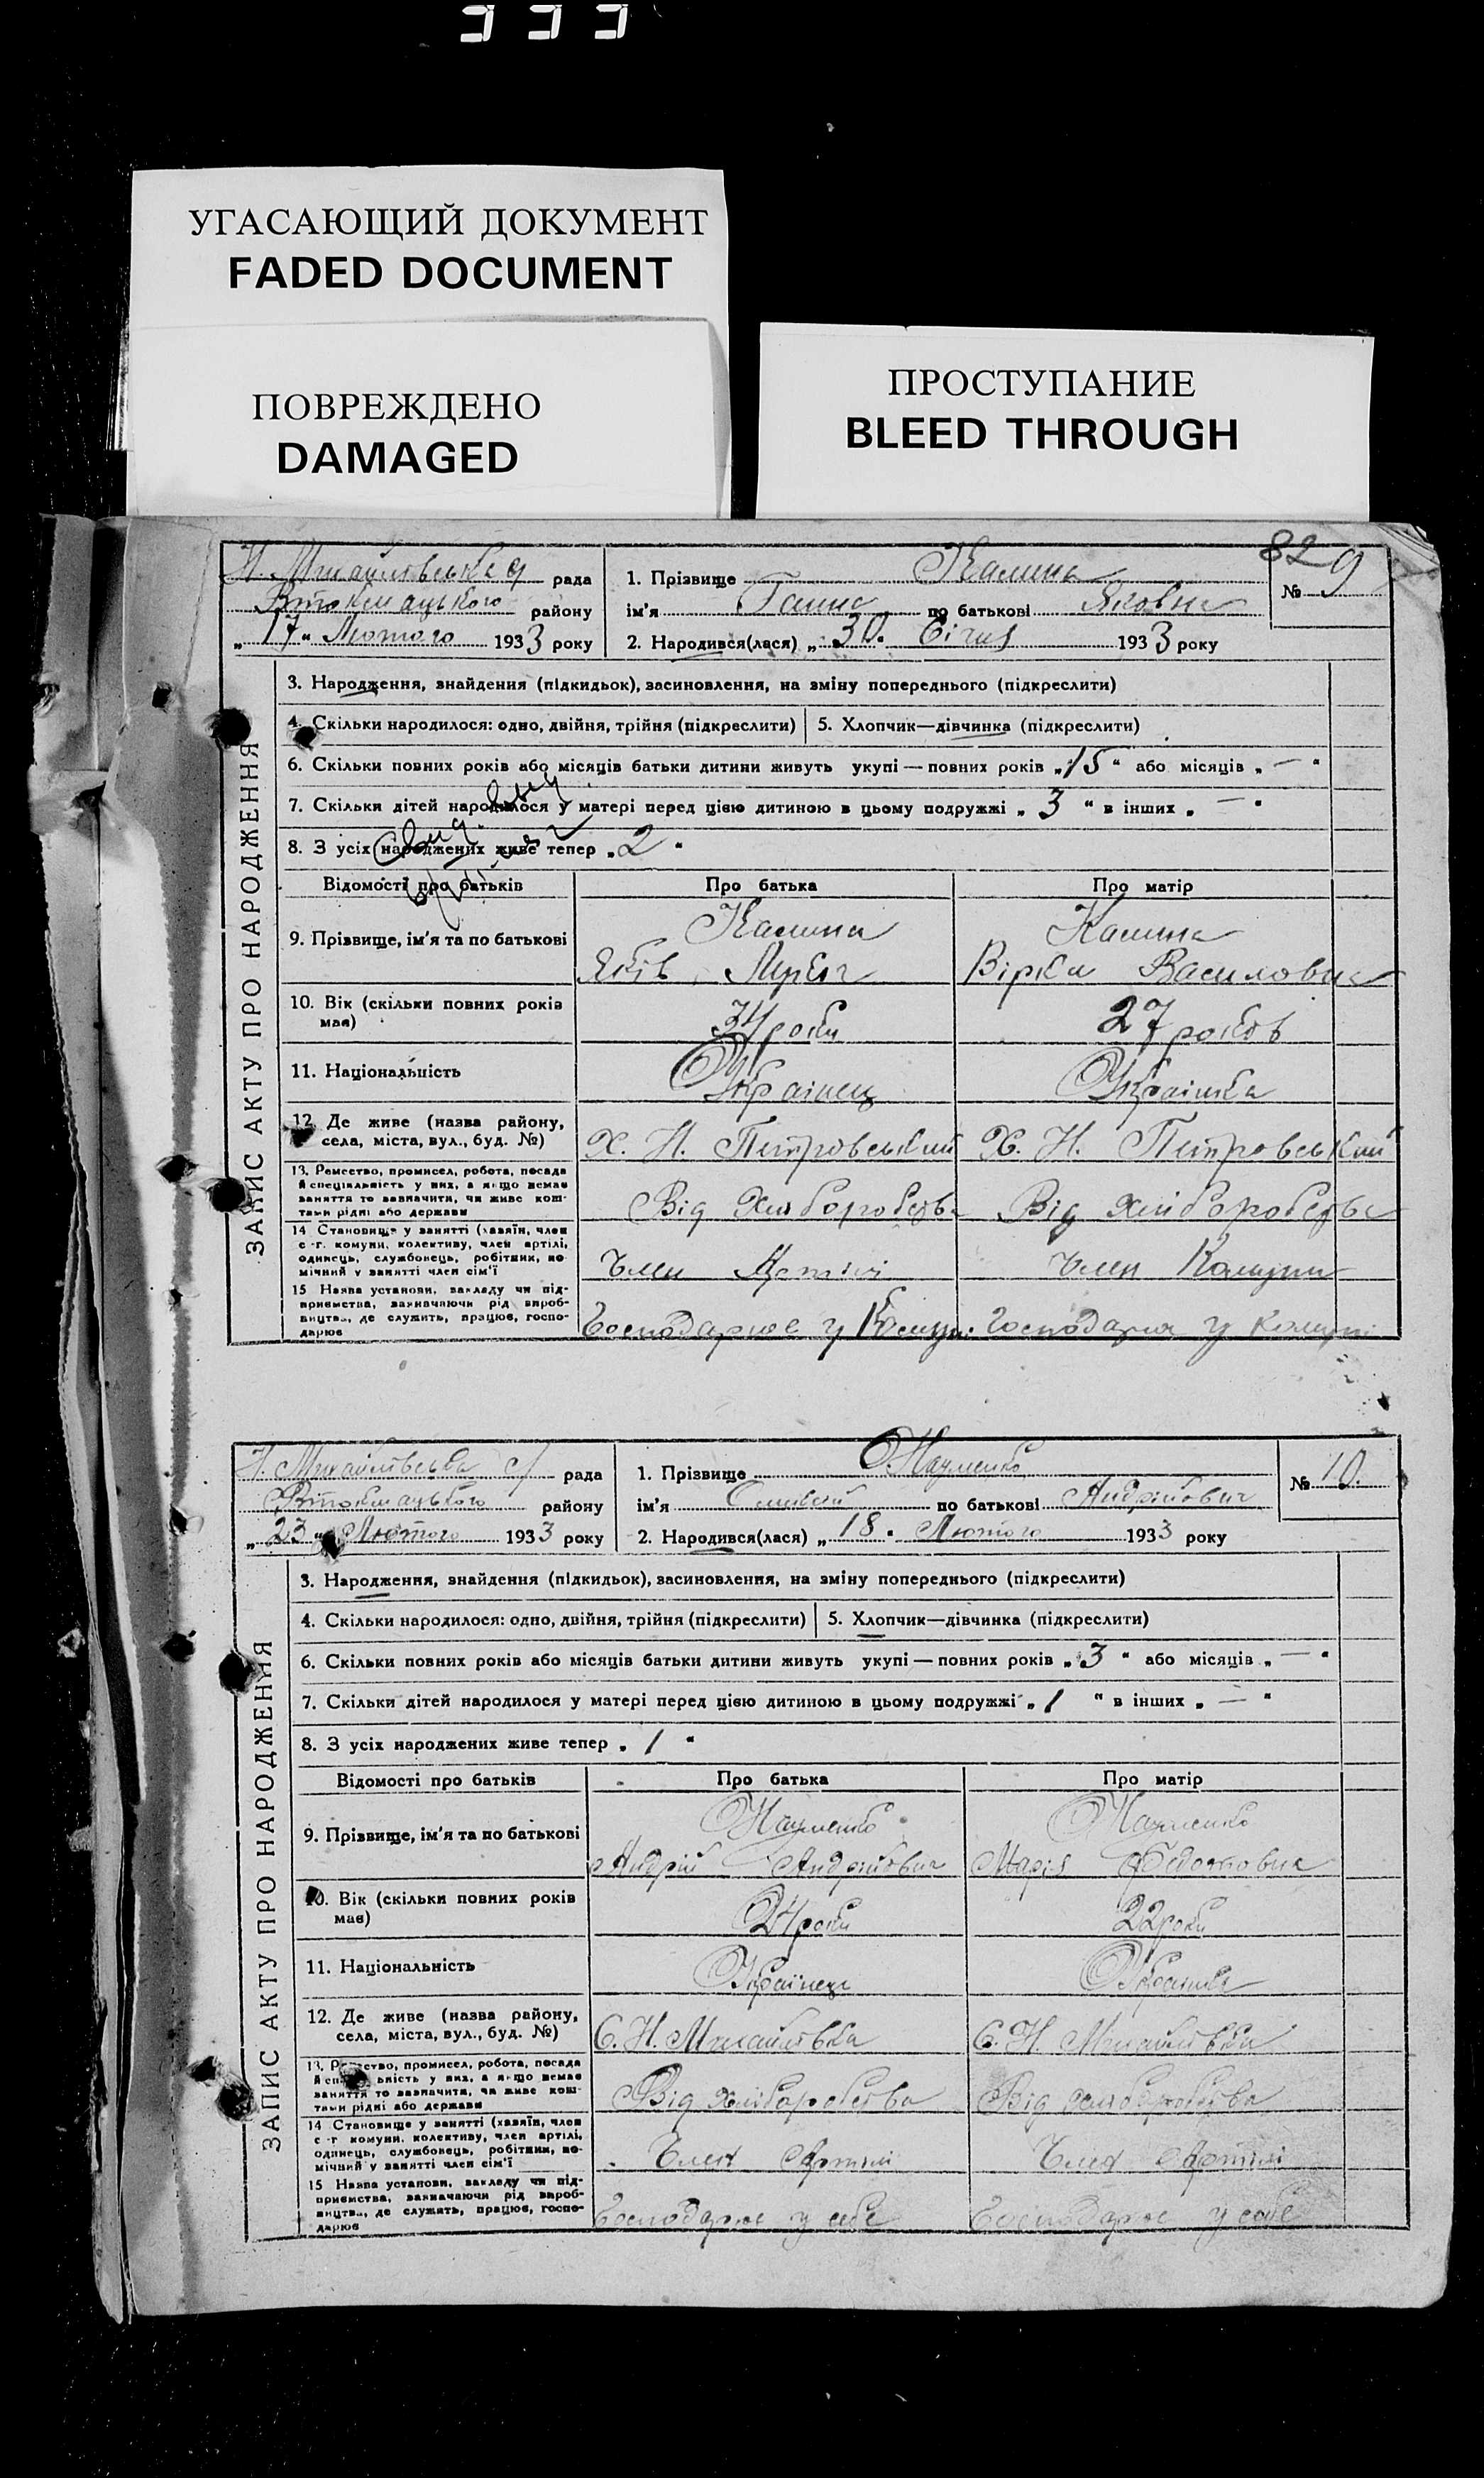 УГАСАЮЩИЙ ДОКУМЕНТ
FADED DOCUMENT
ПОВРЕЖДЕНО
DAMAGED
ПРОСТУПАНИЕ
BLEED THROUGH
82
Н. Михайлівська рада
районy
„17" Лютого 1933 року
1. Прізвище Калина
ім'я Ганна по батькові Яковна
2. Народився(лася) „30" Січня 1933 року
№ 9
ЗАПИС АКТУ ПРО НАРОДЖЕННЯ
3. Народження, знайдення (підкидьок), засиновлення, на зміну попереднього (підкреслити)
4. Скільки народилося: одно, двійня, трійня (підкреслити) 5. Хлопчик—дівчинка (підкреслити)
6. Скільки повних років або місяців батьки дитини живуть укупі — повних років „15" або місяців „—"
7. Скільки дітей народилося у матері перед цією дитиною в цьому подружжі „3" в інших „—"
8. З усіх народжених живе тепер „2"
Відомості про батьків Про батька Про матір
9. Прізвище, ім'я та по батькові Калина Калина
Яків Вірка Василовна
10. Вік (скільки повних років має) 34 роки 27 років
11. Національність Українець Українка
12. Де живе (назва району, села, міста, вул., буд. №) Х. Н. Петровський Х. Н. Петровський
13. Ремество, промисел, робота, посада й спеціяльність у них, а якщо немає заняття то зазначити, чи живе коштами рідні або держави Від хліборобства Від хліборобства
14 Становище у занятті (хазяїн, член с.-г. комуни, колективу, член артілі, одинець, службовець, робітник, помічний у занятті член сім'ї Член Артілі Член Комуни
15 Назва установи, закладу чи підприємства, зазначаючи рід виробництва, де служить, працює, господарює Господарює у Комуні Господарює у комуні
Н. Михайлівська с/ рада
району
„23" Лютого 1933 року
1. Прізвище Науменко
ім'я Олексій по батькові Андрійович
2. Народився(лася) „18" Лютого 1933 року
№ 10.
ЗАПИС АКТУ ПРО НАРОДЖЕННЯ
3. Народження, знайдення (підкидьок), засиновлення, на зміну попереднього (підкреслити)
4. Скільки народилося: одно, двійня, трійня (підкреслити) 5. Хлопчик—дівчинка (підкреслити)
6. Скільки повних років або місяців батьки дитини живуть укупі — повних років „3" або місяців „—"
7. Скільки дітей народилося у матері перед цією дитиною в цьому подружжі „1" в інших „—"
8. З усіх народжених живе тепер „1"
Відомості про батьків Про батька Про матір
9. Прізвище, ім'я та по батькові Науменко Науменко
Андрій Андрійович Марія Федотовна
10. Вік (скільки повних років має) 24 роки 22 роки
11. Національність Українець Українка
12. Де живе (назва району, села, міста, вул., буд. №) С. Н. Михайлівка С. Н. Михайлівка
13. Ремество, промисел, робота, посада й спеціяльність у них, а якщо немає заняття то зазначити, чи живе коштами рідні або держави Від хліборобства Від хліборобства
14 Становище у занятті (хазяїн, член с.-г комуни, колективу, член артілі, одинець, службовець, робітник, помічний у занятті член сім'ї Член Артілі Член Артілі
15 Назва установи, закладу чи підприємства, зазначаючи рід виробництва, де служить, працює, господарює Господарює у себе Господарює у себе